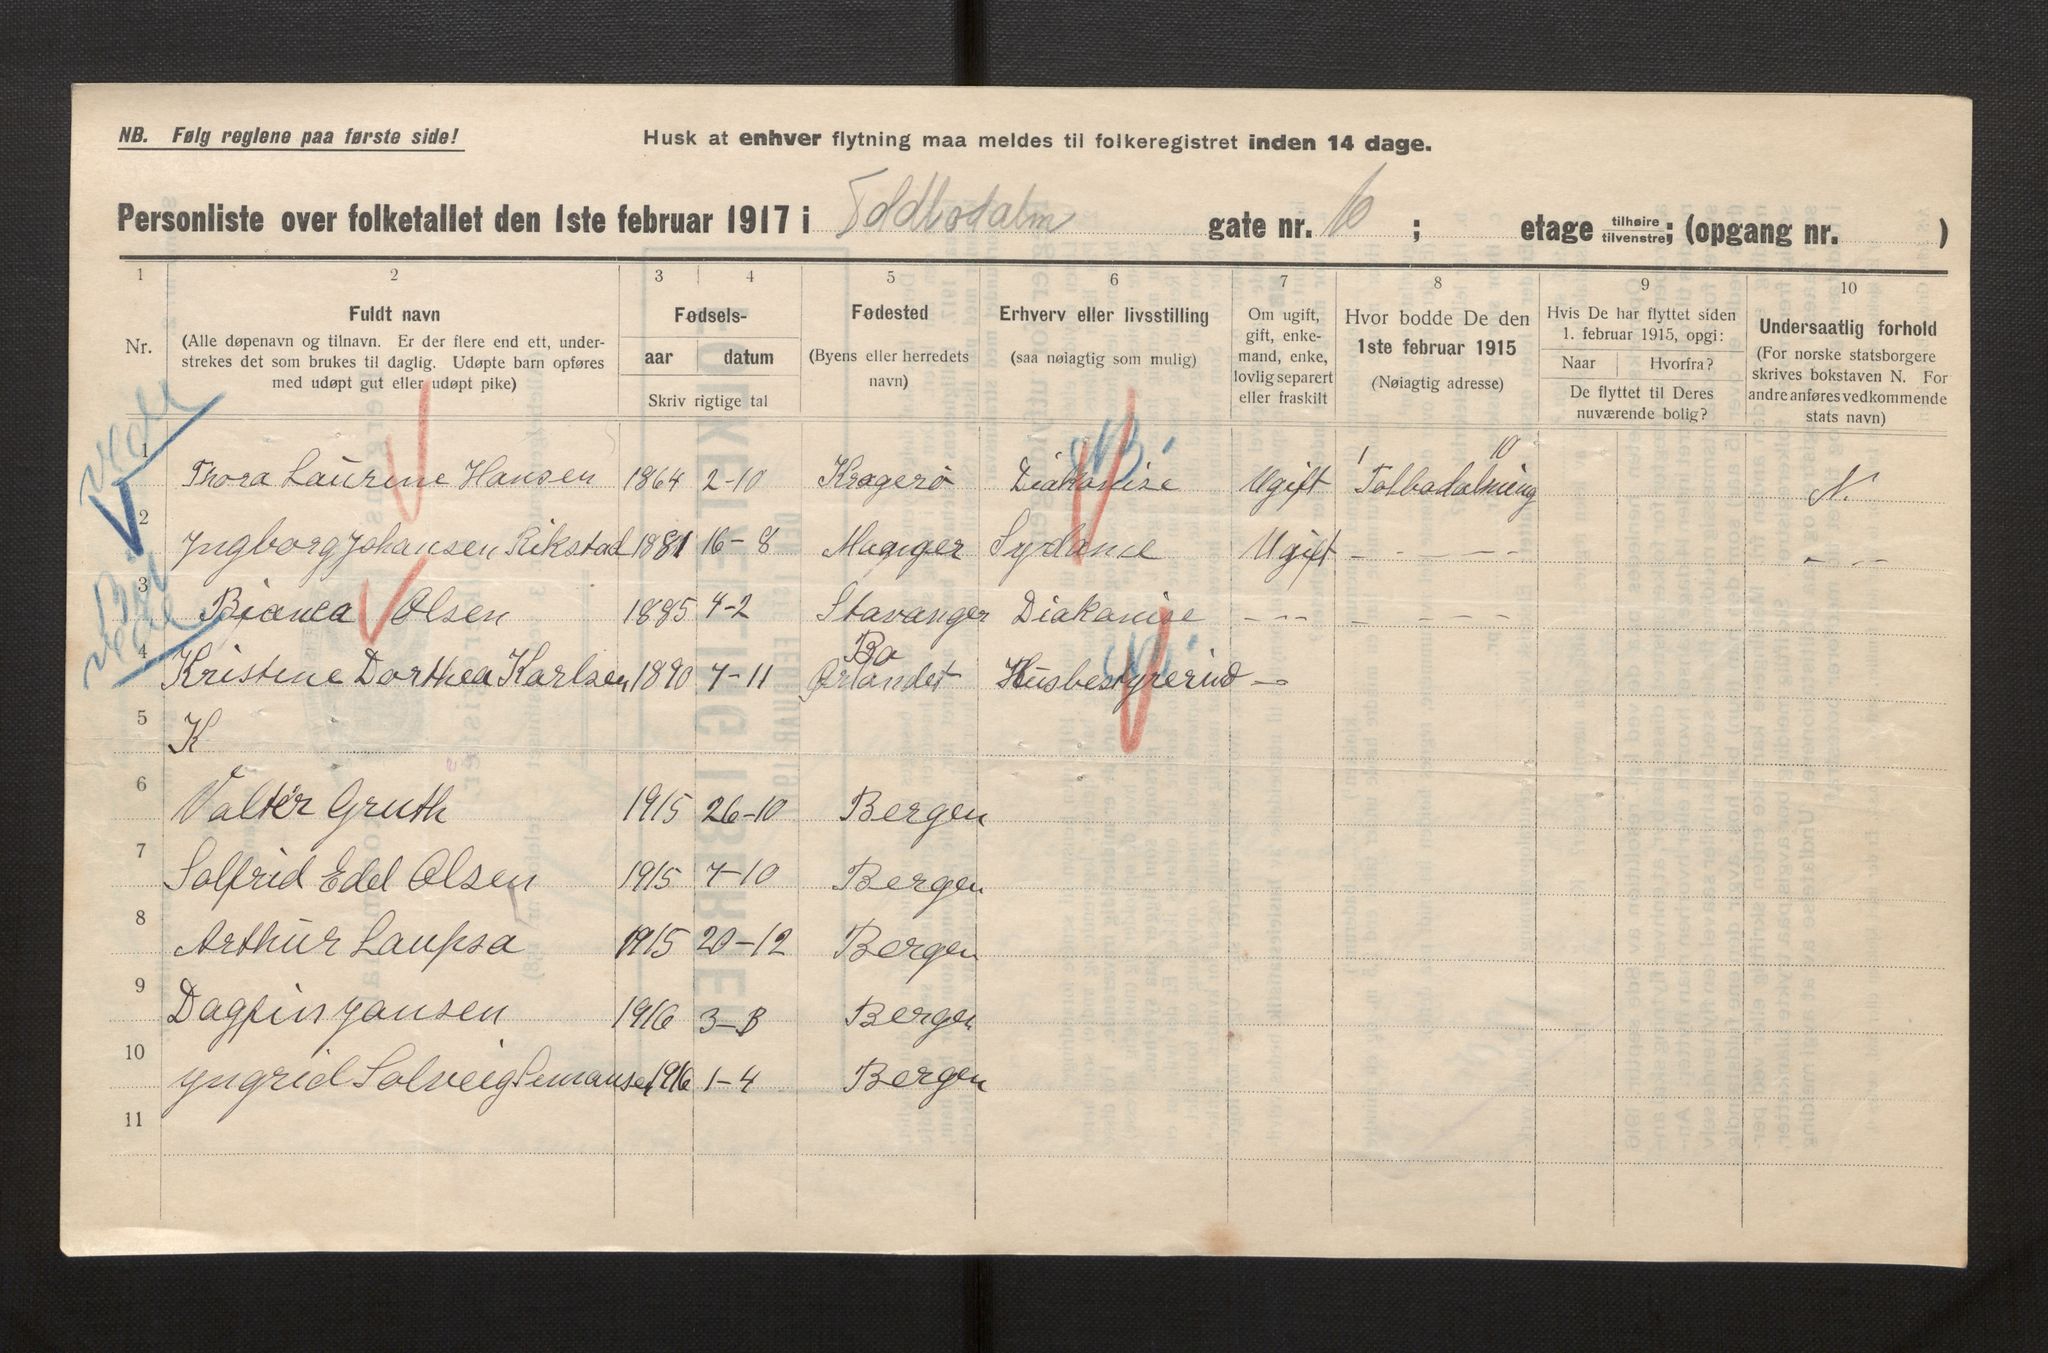 NB. Følg reglene paa første side!
Husk at enhver flytning maa meldes til folkeregistret inden 14 dage.
Personliste over folketallet den 1ste februar 1917 i Toldbodalm gate nr. 10 ; etage tilhøire tilvenstre; (opgang nr. )
1 2 3 4 5 6 7 8 9 10
Nr.
Fuldt navn
(Alle døpenavn og tilnavn. Er der flere end ett, under-
strekes det som brukes til daglig. Udøpte barn opføres
med udøpt gut eller udøpt pike)
Fødsels-
aar datum
Skriv rigtige tal
Fødested
(Byens eller herredets
navn)
Erhverv eller livsstilling
(saa nøiagtig som mulig)
Om ugift,
gift, enke-
mand, enke,
lovlig separert
eller fraskilt
Hvor bodde De den
1ste februar 1915
(Nøiagtig adresse)
Hvis De har flyttet siden
1. februar 1915, opgi:
Naar Hvorfra?
De flyttet til Deres
nuværende bolig?
Undersaatlig forhold
(For norske statsborgere
skrives bokstaven N. For
andre anføres vedkommende
stats navn)
1 Thora Laurene Hansen 1864 2-10 Kragerø Diakonise Ugift Tolbodalming 10 N.
2 Yngborg Johansen Rikstad 1881 16-8 Manger Sydame Ugift - - - - - - - -
3 Bianca Olsen 1885 4-2 Stavanger Diakonise - - - - - - - -
4 Kristine Dorthea Karlsen 1890 7-11 Ørlandet Husbestyrerind -
5 K
6 Valter Gruth 1915 26-10 Bergen
7 Solfrid Edel Olsen 1915 7-10 Bergen
8 Arthur Laupsa 1915 20-12 Bergen
9 Dagfin Jansen 1916 3-8 Bergen
10 Yngrid Solveig 1916 1-4 Bergen
11